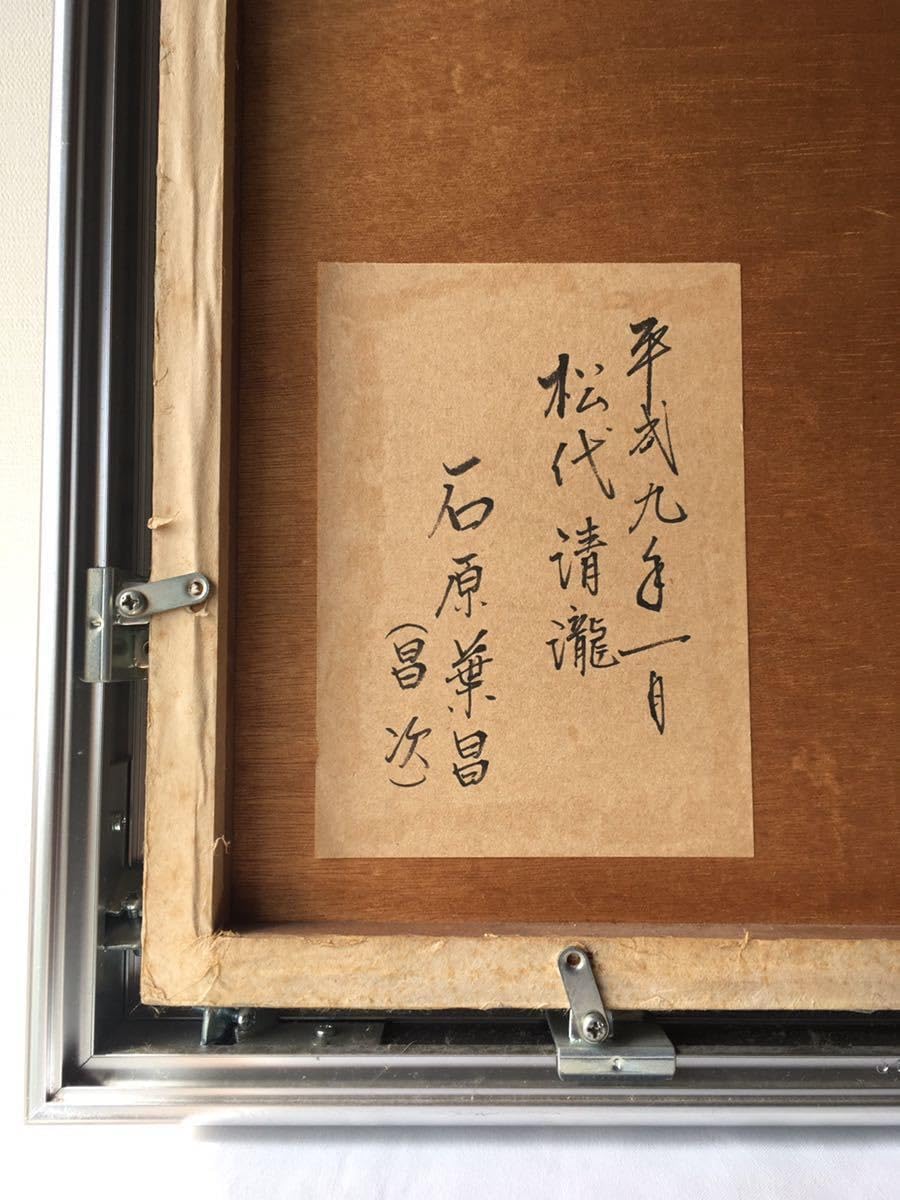 平成九年一月
松代清瀧
石原葉昌
(昌次)